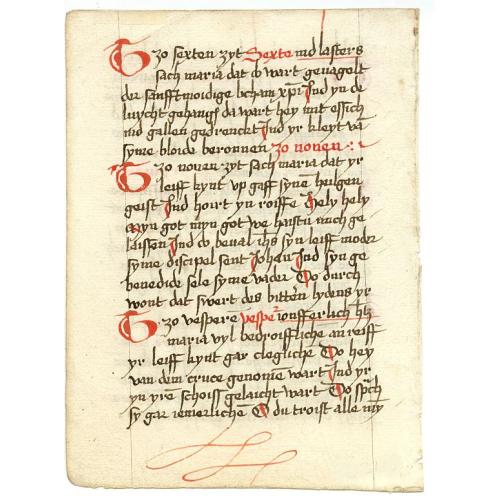 Zo sexten zyt Sexte ind lasters
sach maria dat ... wart genagelt
der sanfftmoidige licham xpi Ind yn de
luycht gehangē da wart hey mit essich
ind gallen gedrenckt Ind yr kleyt vā
syme bloide beronnen zo nonen
Zo nonen zyt sach maria dat yr
leiff kynt vp gaff synē heilgen
geist Ind hoirt yn roiffē hely hely
myn got myn got we haistu mich ge
laissen Ind ... beual ihs syn leiff moder
syme discipel sent Johan Ind syn ge
benedide sele syme vader Do durch
wont dat swert des bitterē lydens yr
Zo vespere vesper ionfferlich htz
maria vyl bedroifflichē an reiff
yr leiff kynt gar cleglichē Do hey
van dem cruce genomē wart Ind yr
yn yrē schoiss gelaicht wart Do spch
sy gar iemerlichē O du troist alle my